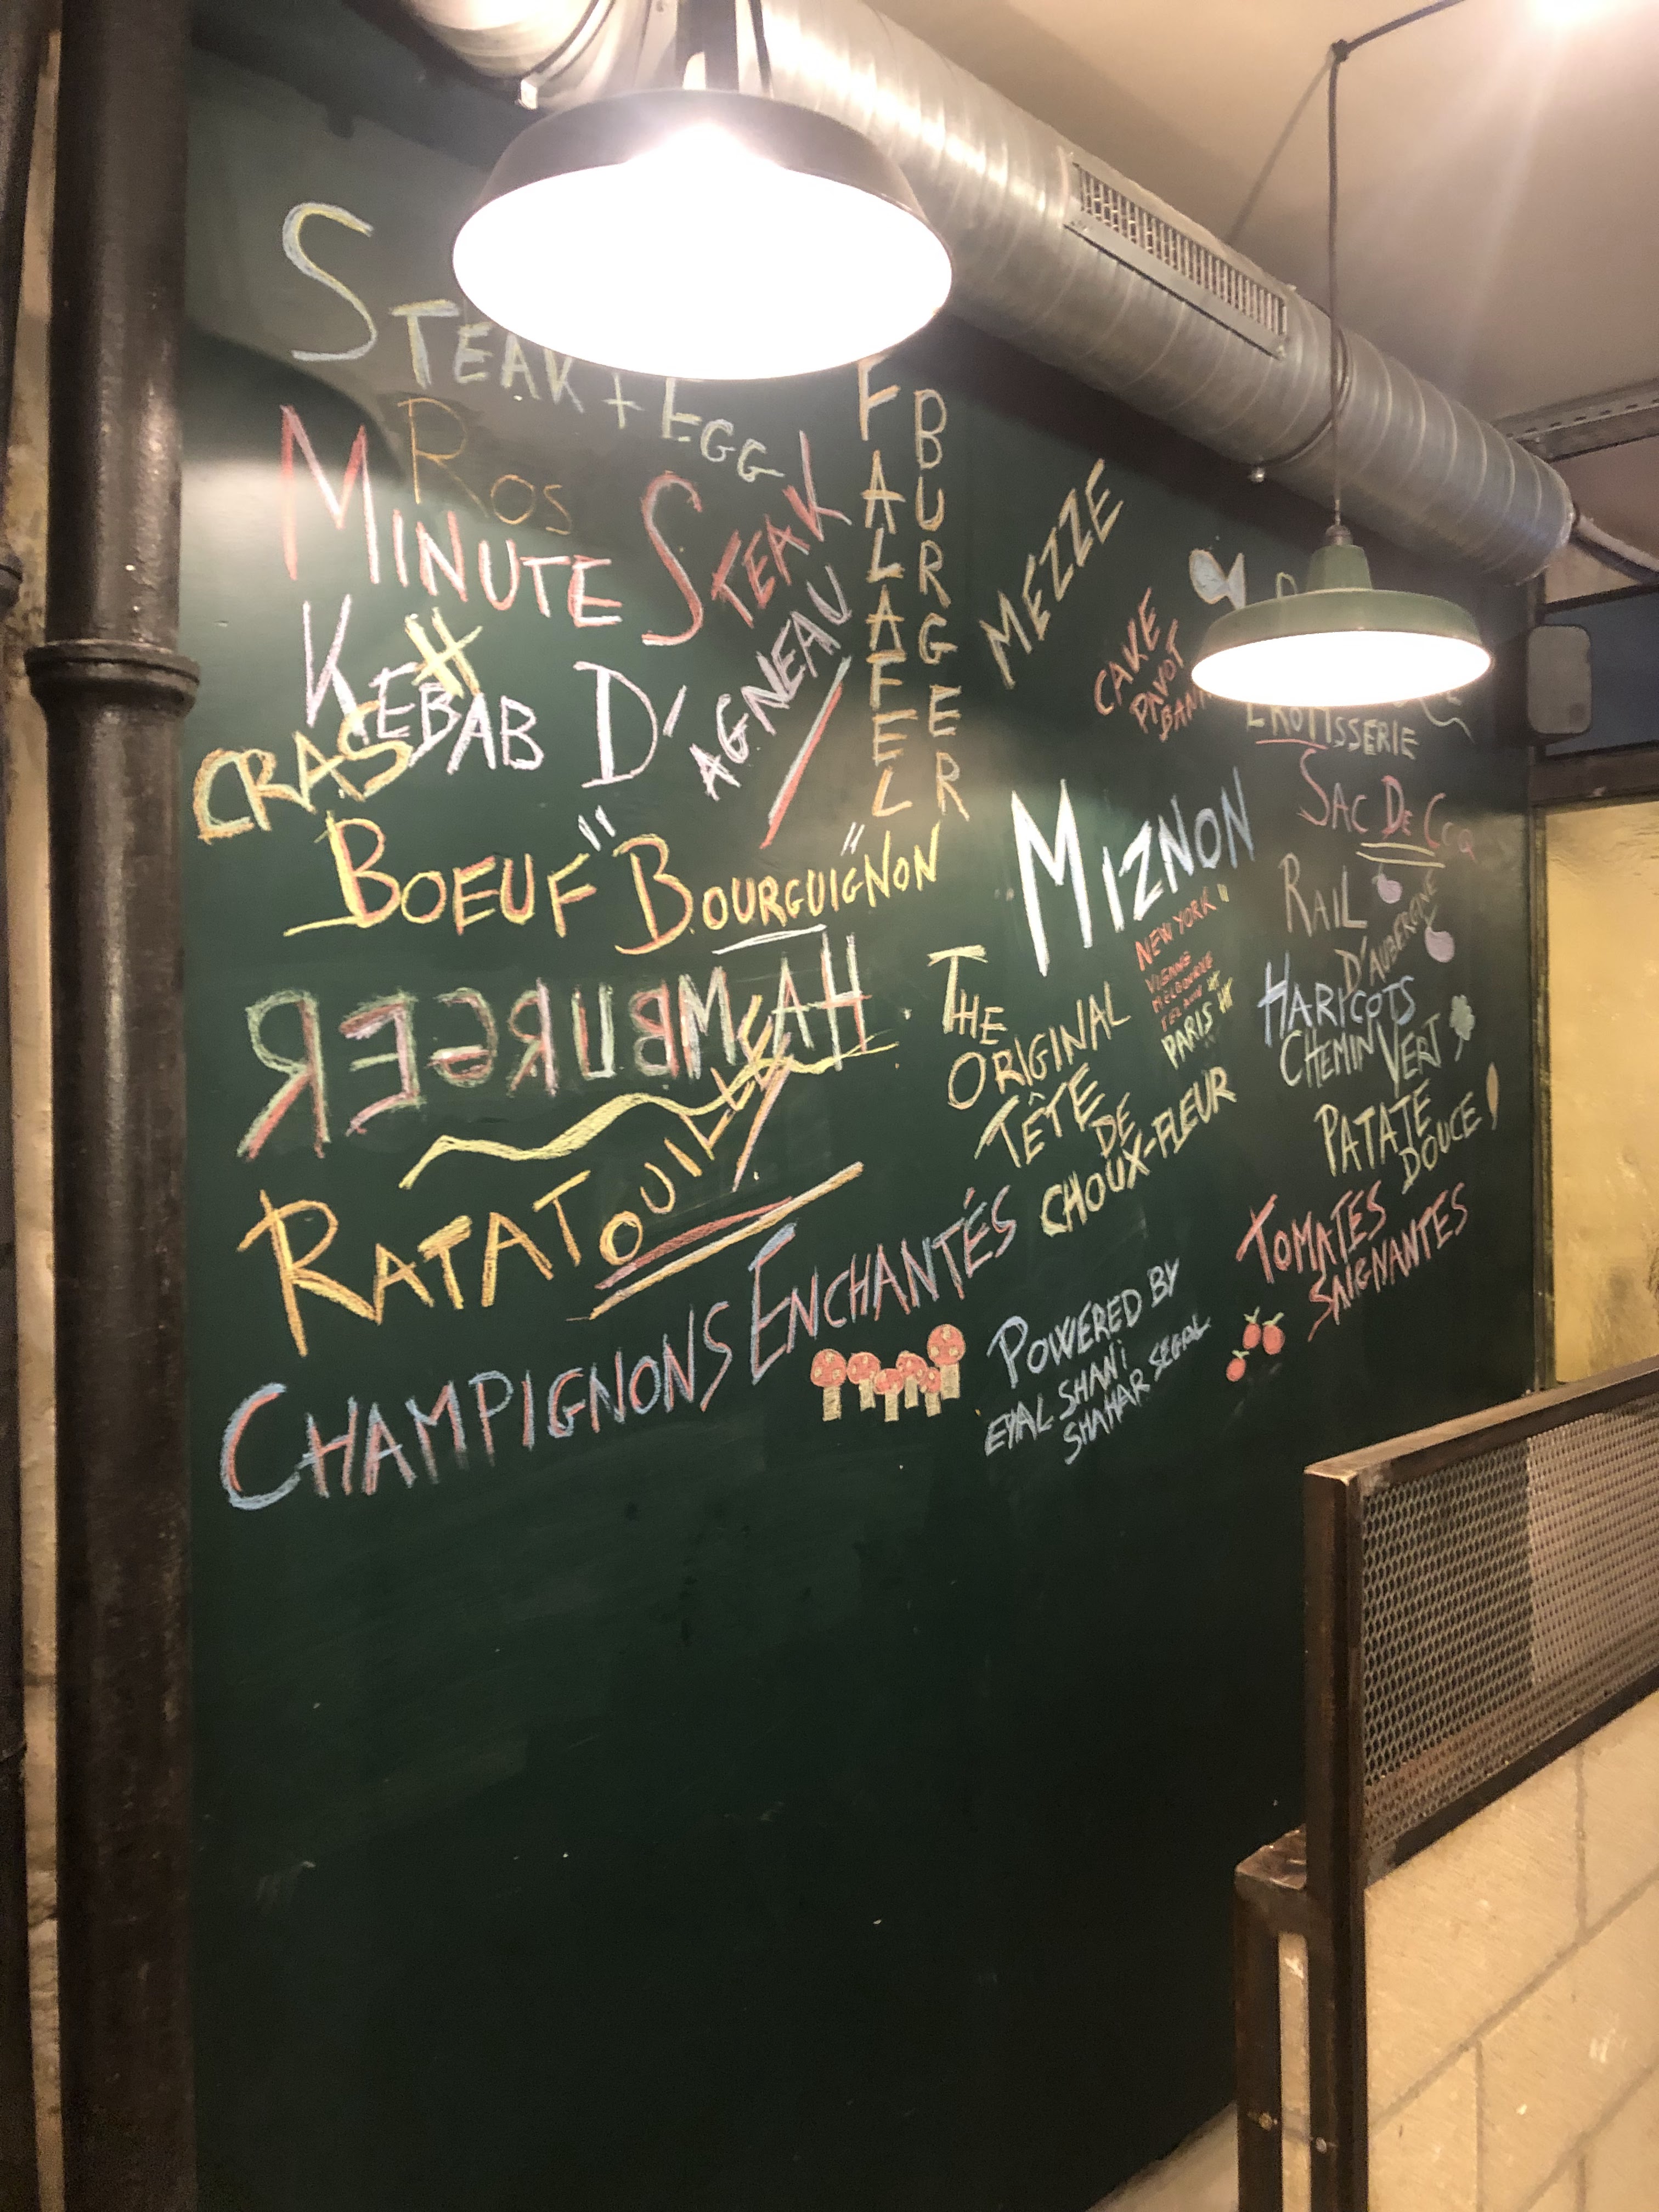 STEAK + EGG
ROS
MINUTE STEAK
KEBAB D'AGNEAU
CRASH
BOEUF "BOURGUIGNON"
HAMBURGER
RATATOUILLE
CHAMPIGNONS ENCHANTÉS
FALAFEL
BURGER
MEZZE
CAKE
PAVOT
MIZNON
NEW YORK
VIENNE
MELBOURNE
TEL AVIV
PARIS
THE
ORIGINAL
TÊTE
DE
CHOUX-FLEUR
POWERED BY
EYAL SHANI
SHAHAR SEGAL
ROTISSERIE
SAC DE COQ
RAIL
D'AUBERGINE
HARICOTS
CHEMIN VERT
PATATE
DOUCE
TOMATES
SAIGNANTES